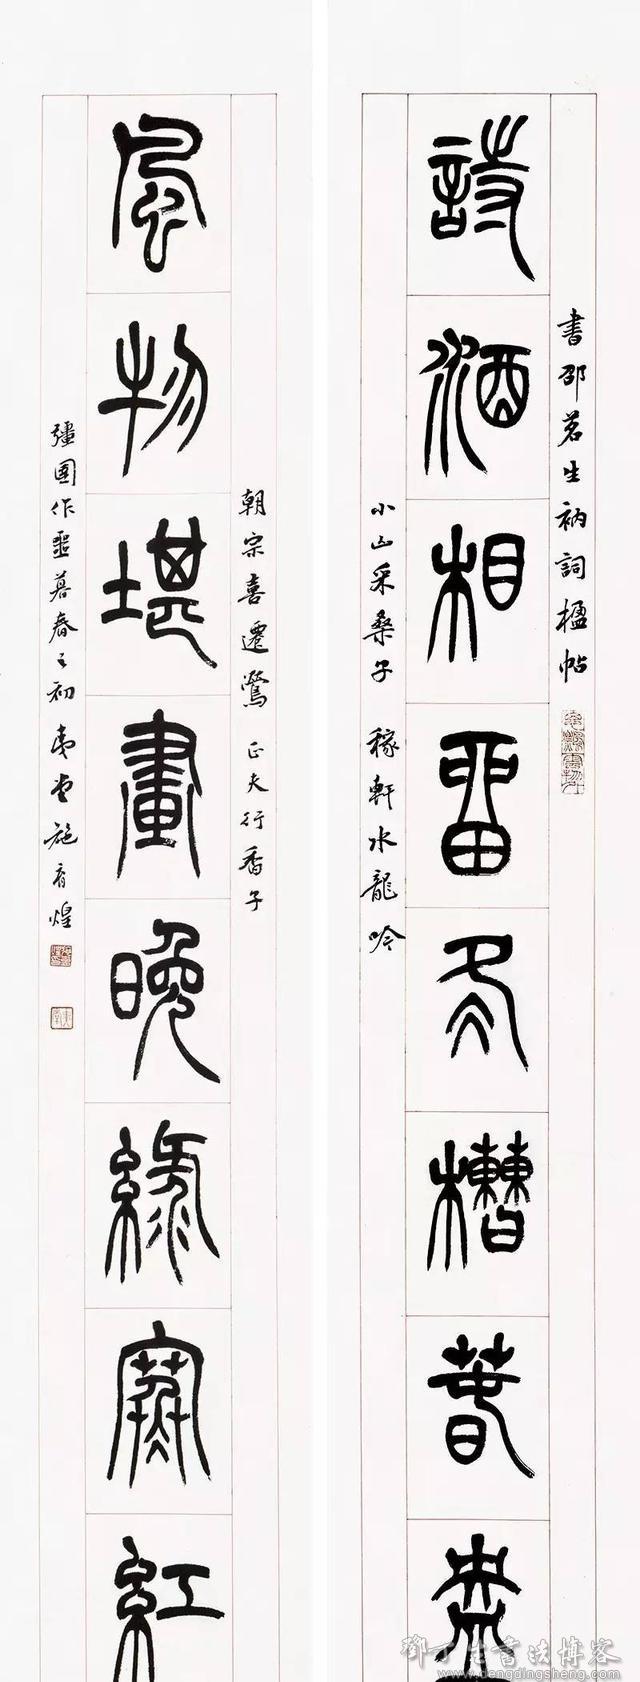 書邵茗生衲詞楹帖
詩酒相留冬槽春盎
小山采桑子 稼軒水龍吟
朝宗喜遷鶯 正夫行香子
風物堪畫晚緑寒紅
彊圉作噩暮春之初 施 煌
鄧丁生書法博客
www.dengdingsheng.com